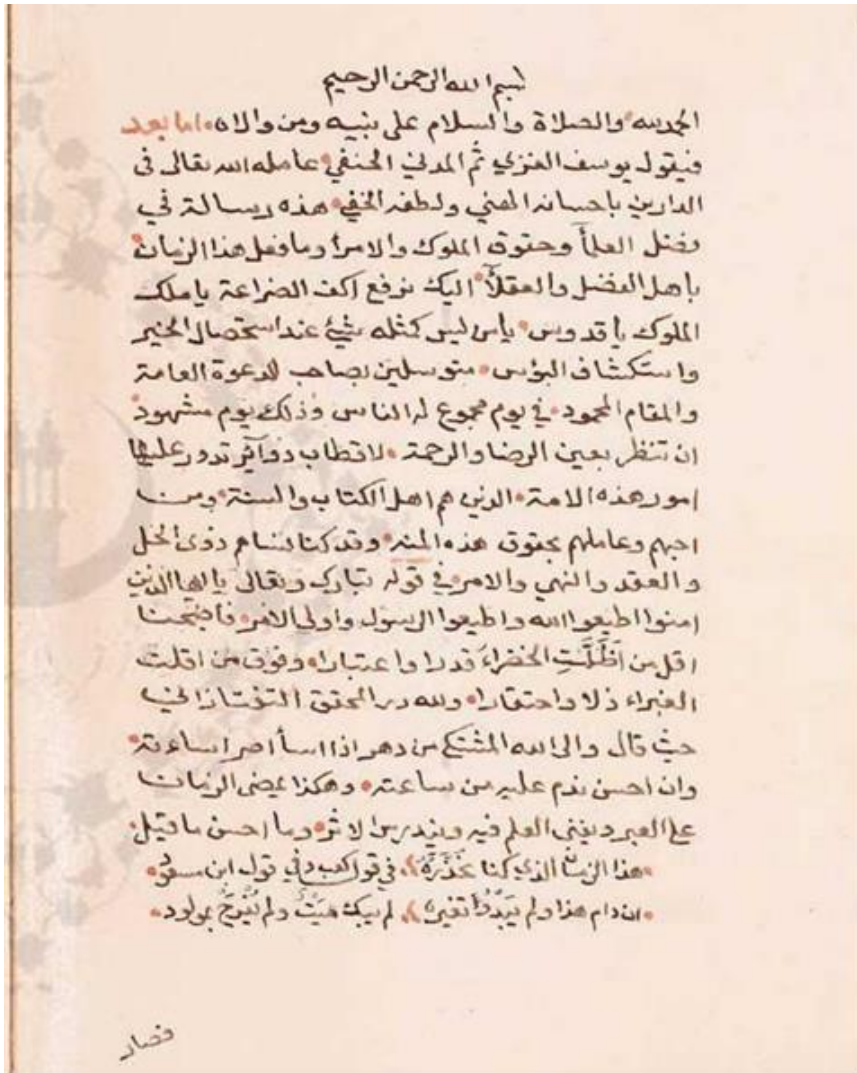 بسم الله الرحمن الرحيم
الحمد لله والصلاة والسلام على نبيه ومن والاه اما بعد
فيقول يوسف الغزي ثم المدني الحنفي عامله الله تعالى في
الدارين باحسانه الهني ولطفه الخفي هذه رسالة في
فضل العلمآ وحقوق الملوك والامرآ وما فعل هذا الزمان
باهل الفضل والعقلآ اليك نرفع اكف الضراعة يا ملك
الملوك يا قدوس يا من ليس كمثله شيئ عند استحصال الخير
واستكشاف البؤس متوسلين بصاحب الدعوة العامة
والمقام المحمود في يوم مجموع له الناس وذلك يوم مشهود
ان تنظر بعين الرضا والرحمة لاقطاب دوآئر تدور عليها
امور هذه الامة الذين هم اهل الكتاب والسنة ومن
احبهم وعاملهم بحقوق هذه المنه وقد كنا نسام ذوى الحل
والعقد والنهي والامر في قوله تبارك وتعالى يا ايها الذين
امنوا اطيعوا الله واطيعوا الرسول واولى الامر فاصبحنا
اقل من اظلت الخضراء قدرا واعتبارا وفوق من اقلت
الغبراء ذلا واحتقارا ولله در المحقق التفتازاني
حيث قال والى الله المشتكى من دهر اذا اسآ اصر اساءته
وان احسن ندم عليه من ساعته وهكذا يمضى الزمان
على العبر ويفنى العلم فيه ويندرس الاثر وما احسن ما قيل
هذا الزمان الذي كنا نحذره في قول كعب وفي قول ابن مسعود
ان دام هذا ولم يبدو تغيره لم يبك ميت ولم يفرح بمولود
فصار